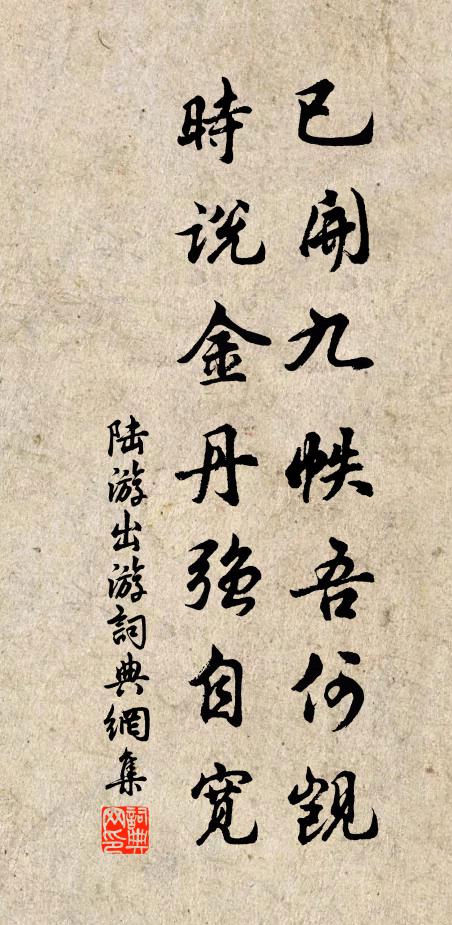 已開九帙吾何覬
時説金丹強自寬
陆游出游詞典網集
詞典网印